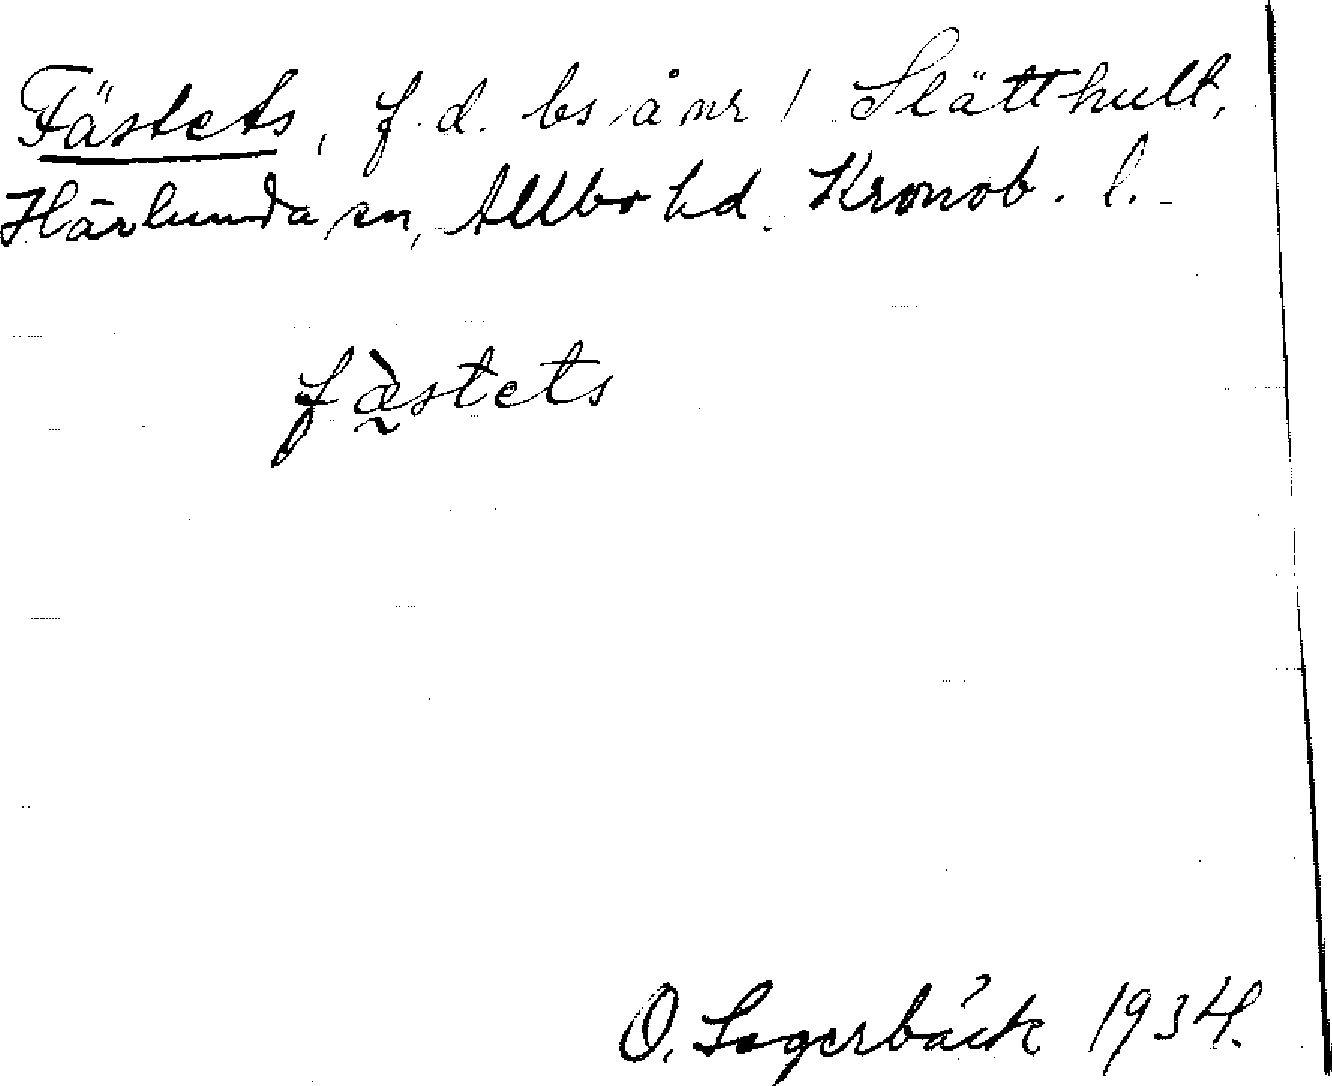 Fästets, f.d. bs å nr 1 Slätthult,
Härlunda sn, Allbo hd. Kronob. l.
fæ̀stets
O. Sagerbäck 1934.